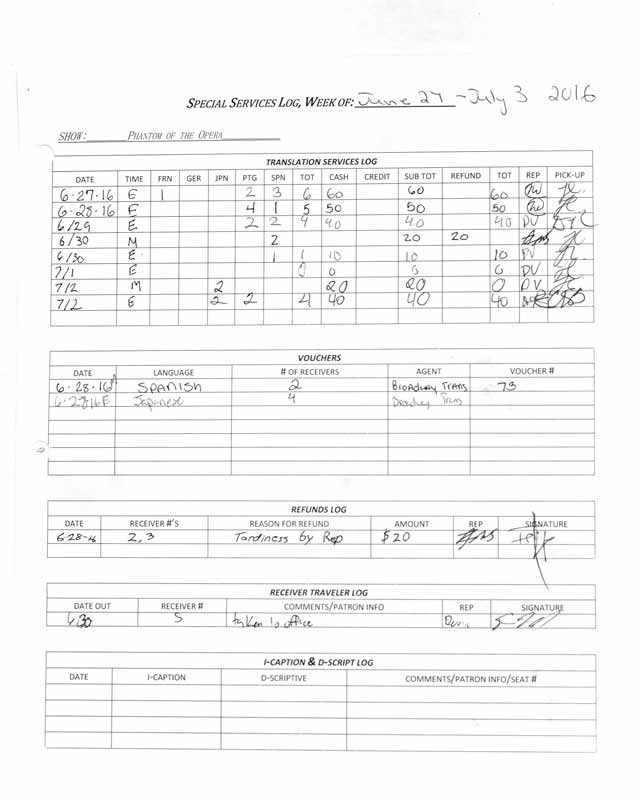 SPECIAL SERVICES LOG, WEEK OF: June 27 - July 3 2016
SHOW: PHANTOM OF THE OPERA
TRANSLATION SERVICES LOG
DATE TIME FRN GER JPN PTG SPN TOT CASH CREDIT SUB TOT REFUND TOT REP PICK-UP
6-27-16 E 1 2 3 6 60 60 60
6-28-16 E 4 1 5 50 50 50
6/29 E 2 2 4 40 40 40 DV
6/30 M 2 20 20
6/30 E 1 1 10 10 10 DV
7/1 E 0 0 0 0 DV
7/2 M 2 20 20 0 DV
7/2 E 2 2 4 40 40 40
VOUCHERS
DATE LANGUAGE # OF RECEIVERS AGENT VOUCHER #
6-28-16 SPANISH 2 Broadway Trans 73
Japanese 4 Trans
REFUNDS LOG
DATE RECEIVER #'S REASON FOR REFUND AMOUNT REP SIGNATURE
2,3 Tardiness by Rep $20
RECEIVER TRAVELER LOG
DATE OUT RECEIVER # COMMENTS/PATRON INFO REP SIGNATURE
6/30 5 taken to office
I-CAPTION & D-SCRIPT LOG
DATE I-CAPTION D-SCRIPTIVE COMMENTS/PATRON INFO/SEAT #